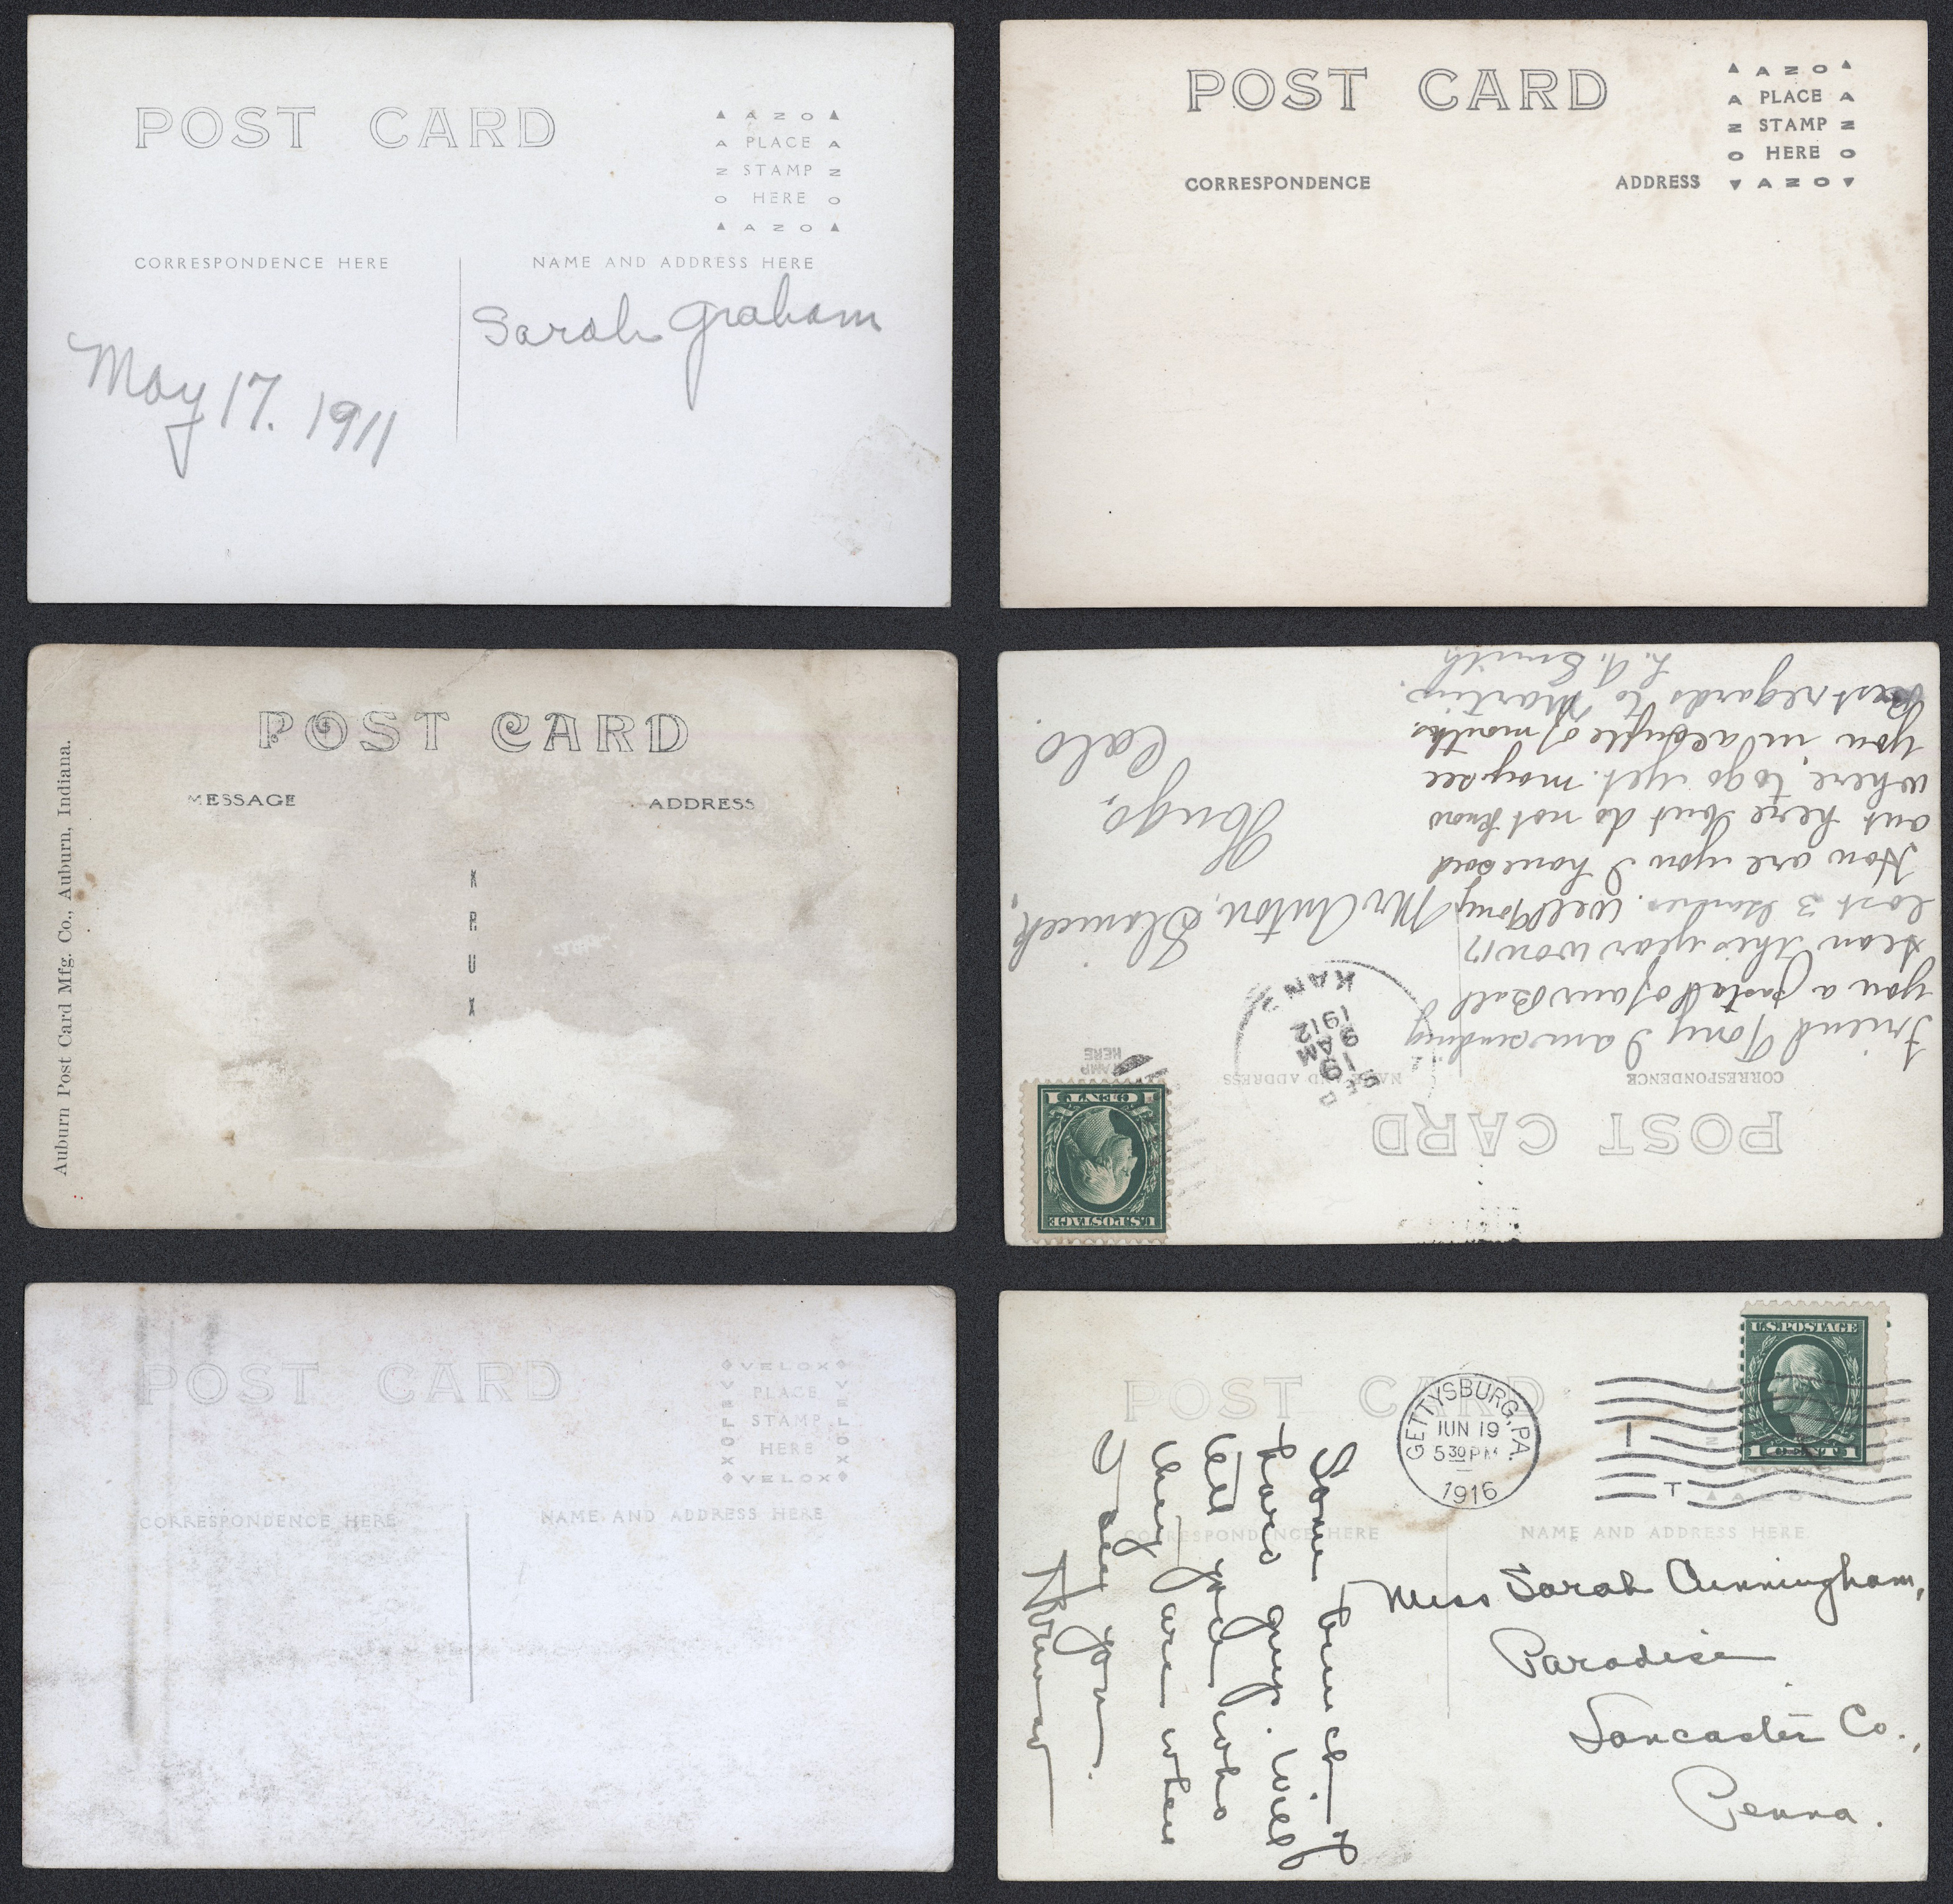 POST CARD
▲ A Z O ▲
A PLACE A
Z STAMP Z
O HERE O
▲ A Z O ▲
CORRESPONDENCE HERE
NAME AND ADDRESS HERE
Sarah Graham
May 17. 1911
POST CARD
▲ A Z O ▲
A PLACE A
Z STAMP Z
O HERE O
▼ A Z O ▼
CORRESPONDENCE
ADDRESS
POST CARD
MESSAGE
ADDRESS
K
R
U
X
Auburn Post Card Mfg. Co., Auburn, Indiana.
POST CARD
CORRESPONDENCE
NAME AND ADDRESS
STAMP
HERE
U.S. POSTAGE
1 CENT 1
SEP
19
9 AM
1912
KANS
Friend Tony I am sending
you a postal of our Ball
team this year won 17
lost 3 games. Well Tony
How are you I have sold
out here but do not know
where to go yet. may see
you in a couple of months.
Best regards to Martin.
L. A. Smith
Mr Anton
Hugo,
Colo.
POST CARD
VELOX
PLACE
STAMP
HERE
VELOX
VELOX
VELOX
CORRESPONDENCE HERE
NAME AND ADDRESS HERE
POST CARD
GETTYSBURG, PA.
JUN 19
5 30 PM
1916
1
T
U.S. POSTAGE
1 CENT 1
CORRESPONDENCE HERE
NAME AND ADDRESS HERE
Some bunch, I
have guys. Will
tell you who
they are when
I see you.
Norman
Miss Sarah Cunningham,
Paradise
Lancaster Co.,
Penna.